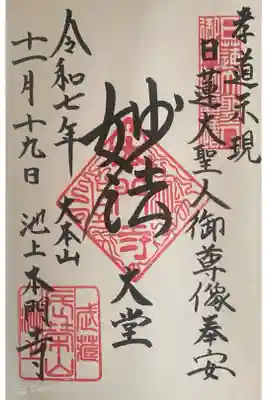 孝道示現
日蓮大聖人御尊像奉安
妙法
大堂
令和七年
大本山
十一月十九日
池上本門寺